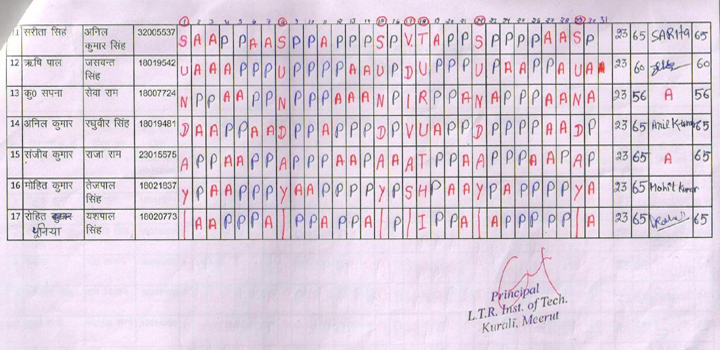 1 2 3 4 5 6 7 8 9 10 11 12 13 14 15 16 17 18 19 20 21 22 23 24 25 26 27 28 29 30 31
11 सरीता सिंह अनिल कुमार सिंह 32005537 S A A P P A A S P P A P P P S P V. T A P P S P P P P A A S P 23 65 SARITA 65
12 ऋषि पाल जसवन्त सिंह 18019542 U A A A P P P U P P P P A A U P D U P P P U P A A P P A U A 23 60 60
13 कु0 सपना सेवा राम 18007724 N P P A A P P N P P P A A A N P I R P P A N A P P P A A N A 23 56 A 56
14 अनिल कुमार रघुवीर सिंह 18019481 D A A P P A A D P P A P P P D P V U A P P D P P P P A A D P 23 65 Anil Kumar 65
15 संजीव कुमार राजा राम 23015575 A P P A A P P A P P P A A P A A A T P P A A P P P A A P A P 23 65 A 65
16 मोहित कुमार तेजपाल सिंह 18021837 Y P A A P P P Y A A P P P P Y P S H P A A Y P A P P P P Y A 23 65 Mohit Kumar 65
17 रोहित पुनिया यशपाल सिंह 18020773 | A A P P P A | P P A P P A | P | I P P A | A P P P P P | A 23 65 65
Principal
L.T.R. Inst. of Tech.
Kurali, Meerut